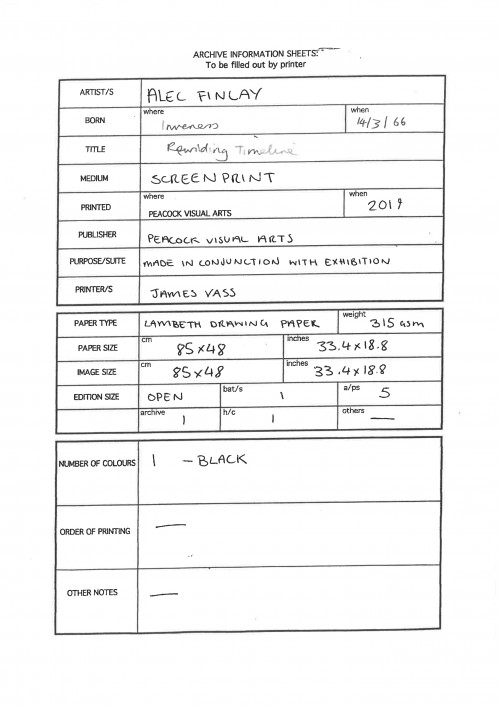 ARCHIVE INFORMATION SHEETS:
To be filled out by printer
ARTIST/S ALEC FINLAY
BORN where Inverness when 14/3/66
TITLE Rewilding Timeline
MEDIUM SCREENPRINT
PRINTED where PEACOCK VISUAL ARTS when 2019
PUBLISHER PEACOCK VISUAL ARTS
PURPOSE/SUITE MADE IN CONJUNCTION WITH EXHIBITION
PRINTER/S JAMES VASS
PAPER TYPE LAMBETH DRAWING PAPER weight 315 GSM
PAPER SIZE cm 85x48 inches 33.4x18.8
IMAGE SIZE cm 85x48 inches 33.4x18.8
EDITION SIZE OPEN bat/s 1 a/ps 5
archive 1 h/c 1 others —
NUMBER OF COLOURS 1 - BLACK
ORDER OF PRINTING —
OTHER NOTES —